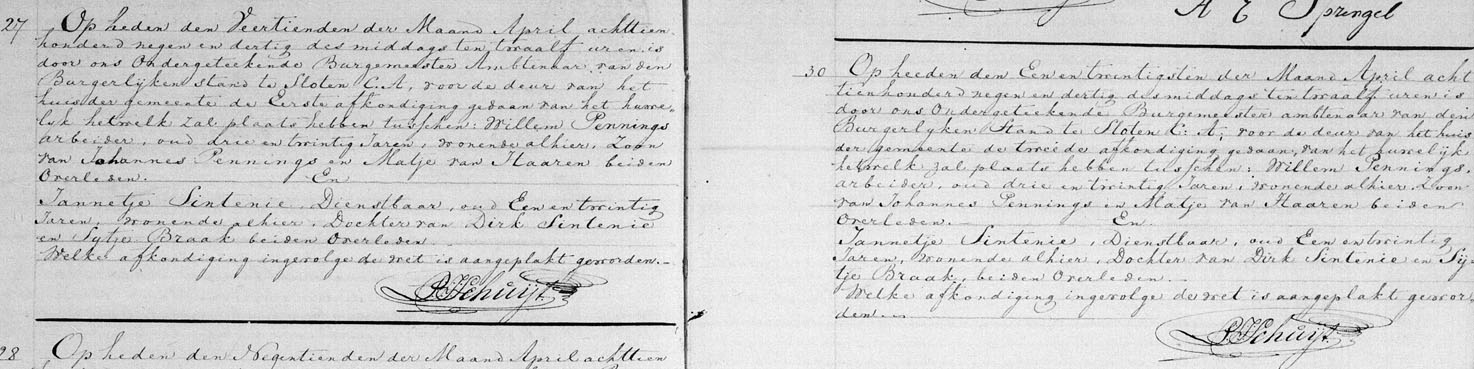 27 Op heden den Veertienden der Maand April achttien
honderd negen en dertig des middags ten twaalf uren is
door ons Ondergeteekende Burgemeester Ambtenaar van den
Burgerlijken stand te Sloten C.A, voor de deur van het
huis der gemeente de Eerste afkondiging gedaan van het huwe-
lyk hetwelk zal plaats hebben tusschen: Willem Pennings
arbeider, oud drie en twintig Jaren, wonende alhier, Zoon
van Johannes Pennings en Matje van Haaren beiden
Overleden. En
Jannetje Sintenie, Dienstbaar, oud Een en twintig
Jaren, wonende alhier, Dochter van Dirk Sintenie
en Sytje Braak beiden Overleden
Welke afkondiging ingevolge de wet is aangeplakt geworden.-
Schuijt
28 Op heden den Negentienden der Maand April achttien
A E Sprengel
30 Op heeden den Een en twintigsten der Maand April acht
tienhonderd negen en dertig des middags ten twaalf uren is
door ons Ondergeteekende Burgemeester ambtenaar van den
Burgerlyken Stand te Sloten C: A; voor de deur van het huis
der gemeente de tweede afkondiging gedaan, van het huwelijk
hetwelk zal plaats hebben tusschen: Willem Pennings.
arbeider, oud drie en twintig Jaren, wonende alhier, Zoon
van Johannes Pennings en Matje van Haaren beiden
Overleden. En
Jannetje Sintenie, Dienstbaar, oud Een en twintig
Jaren, wonende alhier, Dochter van Dirk Sintenie en Sij-
tje Braak, beiden Overleden
Welke afkondiging ingevolge de wet is aangeplakt gewor-
den.
Schuijt